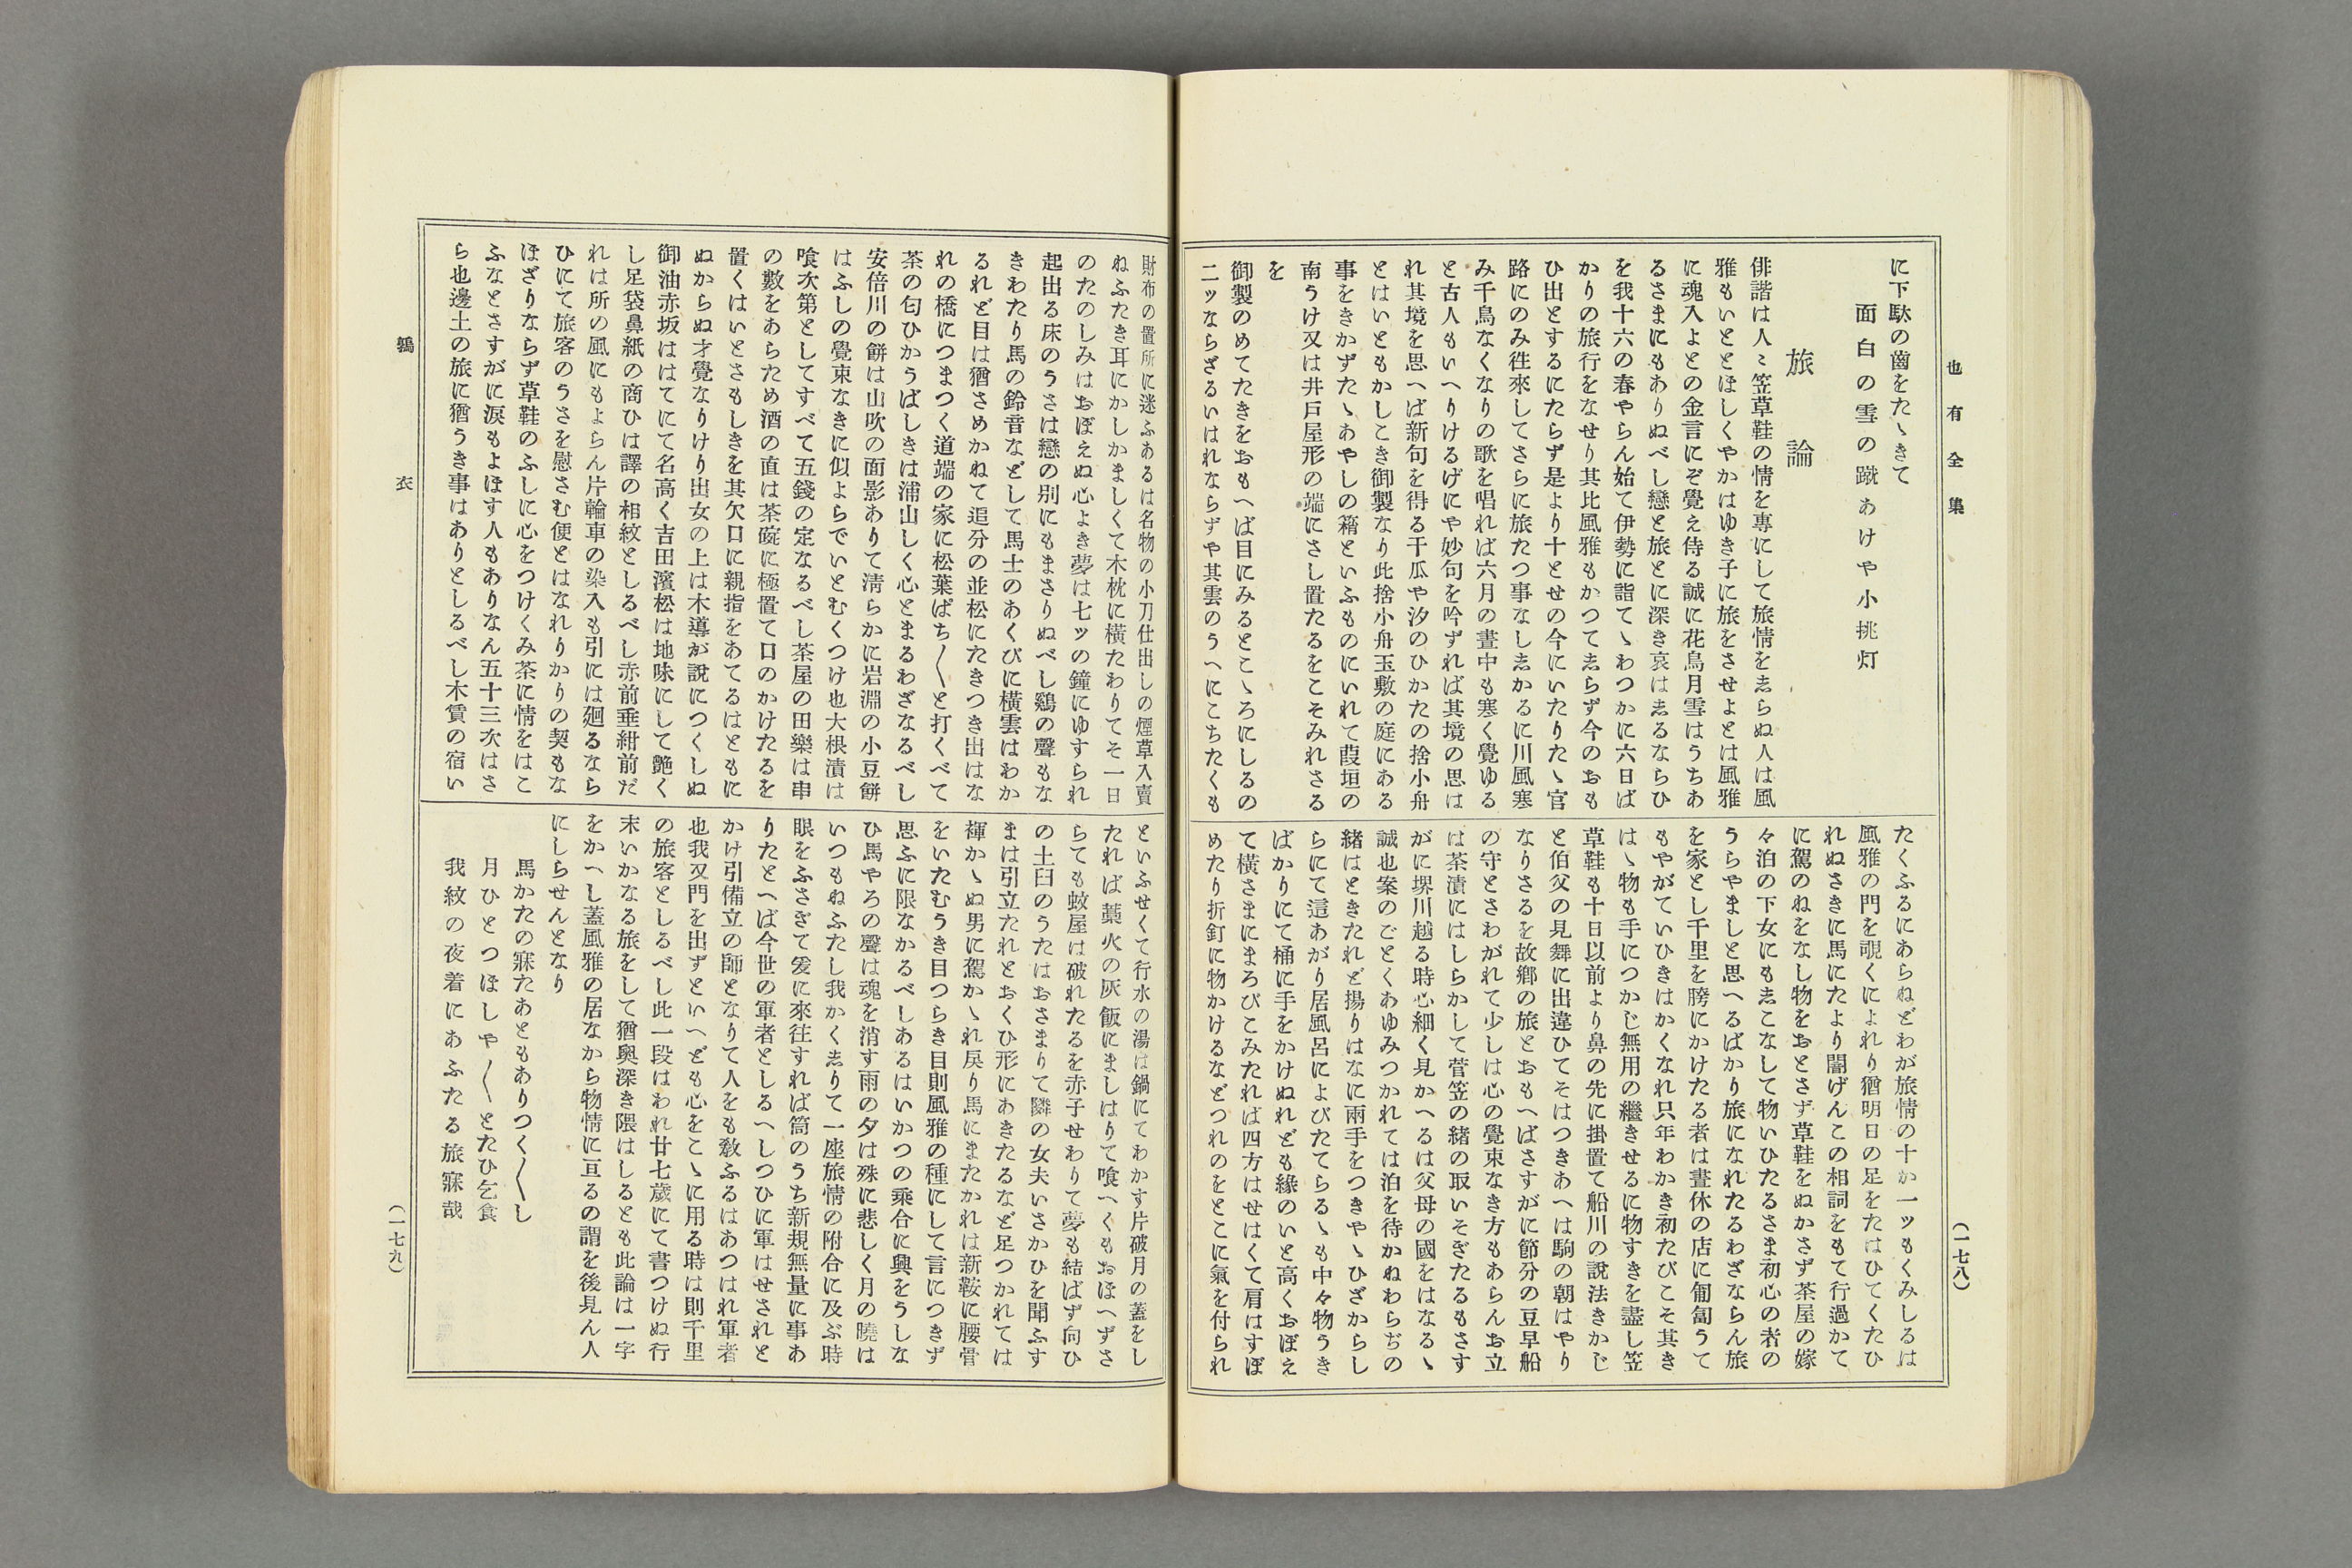 也有全集
(一七八)
に下駄の齒をたゝきて
面白の雪の蹴あけや小挑灯
旅論
俳諧は人〻笠草鞋の情を專にして旅情を志らぬ人は風
雅もいととほしくやかはゆき子に旅をさせよとは風雅
に魂入よとの金言にぞ覺え侍る誠に花鳥月雪はうちあ
るさまにもありぬべし戀と旅とに深き哀は志るならひ
を我十六の春やらん始て伊勢に詣てゝわつかに六日ば
かりの旅行をなせり其比風雅もかつて志らず今のおも
ひ出とするにたらず是より十とせの今にいたりたゝ官
路にのみ徃來してさらに旅たつ事なし志かるに川風寒
み千鳥なくなりの歌を唱れば六月の晝中も寒く覺ゆる
と古人もいへりけるげにや妙句を吟ずれば其境の思は
れ其境を思へば新句を得る干瓜や汐のひかたの捨小舟
とはいともかしこき御製なり此捨小舟玉敷の庭にある
事をきかずたゝあやしの箱といふものにいれて葭垣の
南うけ又は井戸屋形の端にさし置たるをこそみれさる
を
御製のめてたきをおもへば目にみるとこゝろにしるの
二ッならざるいはれならずや其雲のうへにこちたくも
たくふるにあらねどわが旅情の十か一ッもくみしるは
風雅の門を覗くによれり猶明日の足をたはひてくたひ
れぬさきに馬にたより闇げんこの相詞をもて行過かて
に駕のねをなし物をおとさず草鞋をぬかさず茶屋の嫁
々泊の下女にも志こなして物いひたるさま初心の者の
うらやましと思へるばかり旅になれたるわざならん旅
を家とし千里を胯にかけたる者は晝休の店に匍匐うて
もやがていひきはかくなれ只年わかき初たびこそ其き
はゝ物も手につかじ無用の繼きせるに物すきを盡し笠
草鞋も十日以前より鼻の先に掛置て船川の說法きかじ
と伯父の見舞に出違ひてそはつきあへは駒の朝はやり
なりさるを故鄕の旅とおもへばさすがに節分の豆早船
の守とさわがれて少しは心の覺束なき方もあらんお立
は茶漬にはしらかして菅笠の緒の取いそぎたるもさす
がに堺川越る時心細く見かへるは父母の國をはなるゝ
誠也案のごとくあゆみつかれては泊を待かねわらぢの
緖はときたれど揚りはなに兩手をつきやゝひざからし
らにて這あがり居風呂によびたてらるゝも中々物うき
ばかりにて桶に手をかけぬれども緣のいと高くおぼえ
て橫さまにまろびこみたれば四方はせはくて肩はすぼ
めたり折釘に物かけるなどつれのをとこに氣を付られ
財布の置所に迷ふあるは名物の小刀仕出しの煙草入賣
ねふたき耳にかしかましくて木枕に橫たわりてそ一日
のたのしみはおぼえぬ心よき夢は七ッの鐘にゆすられ
起出る床のうさは戀の別にもまさりぬべし鷄の聲もな
きわたり馬の鈴音などして馬士のあくびに橫雲はわか
るれど目は猶さめかねて追分の並松にたきつき出はな
れの橋につまつく道端の家に松葉ぱち〱と打くべて
茶の匂ひかうばしきは浦山しく心とまるわざなるべし
安倍川の餅は山吹の面影ありて淸らかに岩淵の小豆餅
はふしの覺束なきに似よらでいとむくつけ也大根漬は
喰次第としてすべて五錢の定なるべし茶屋の田樂は串
の數をあらため酒の直は茶碗に極置て口のかけたるを
置くはいとさもしきを其欠口に親指をあてるはともに
ぬからぬ才覺なりけり出女の上は木導が說につくしぬ
御油赤坂ははてにて名高く吉田濱松は地味にして艶く
し足袋鼻紙の商ひは譯の相紋としるべし赤前垂紺前だ
れは所の風にもよらん片輪車の染入も引には廻るなら
ひにて旅客のうさを慰さむ便とはなれりかりの契もな
ほざりならず草鞋のふしに心をつけくみ茶に情をはこ
ふなとさすがに淚もよほす人もありなん五十三次はさ
ら也邊土の旅に猶うき事はありとしるべし木賃の宿い
といふせくて行水の湯は鍋にてわかす片破月の蓋をし
たれば藁火の灰飯にましはりて喰へくもおほへずさ
らても蚊屋は破れたるを赤子せわりて夢も結ばず向ひ
の土臼のうたはおさまりて隣の女夫いさかひを聞ふす
まは引立たれとおくひ形にあきたるなど足つかれては
褌かゝぬ男に駕かゝれ戾り馬にまたかれは新鞍に腰骨
をいたむうき目つらき目則風雅の種にして言につきず
思ふに限なかるべしあるはいかつの乘合に興をうしな
ひ馬やろの聲は魂を消す雨の夕は殊に悲しく月の曉は
いつもねふたし我かく志りて一座旅情の附合に及ぶ時
眼をふさぎて爰に來往すれば筒のうち新規無量に事あ
りたとへば今世の軍者としるへしつひに軍はせされと
かけ引備立の師となりて人をも敎ふるはあつはれ軍者
也我又門を出ずといへども心をこゝに用る時は則千里
の旅客としるべし此一段はわれ廿七歲にて書つけぬ行
末いかなる旅をして猶奧深き隈はしるとも此論は一字
をかへし蓋風雅の居なから物情に亘るの謂を後見ん人
にしらせんとなり
馬かたの寐たあともありつく〱し
月ひとつほしや〱とたひ乞食
我紋の夜着にあふたる旅寐哉
鶉衣
(一七九)